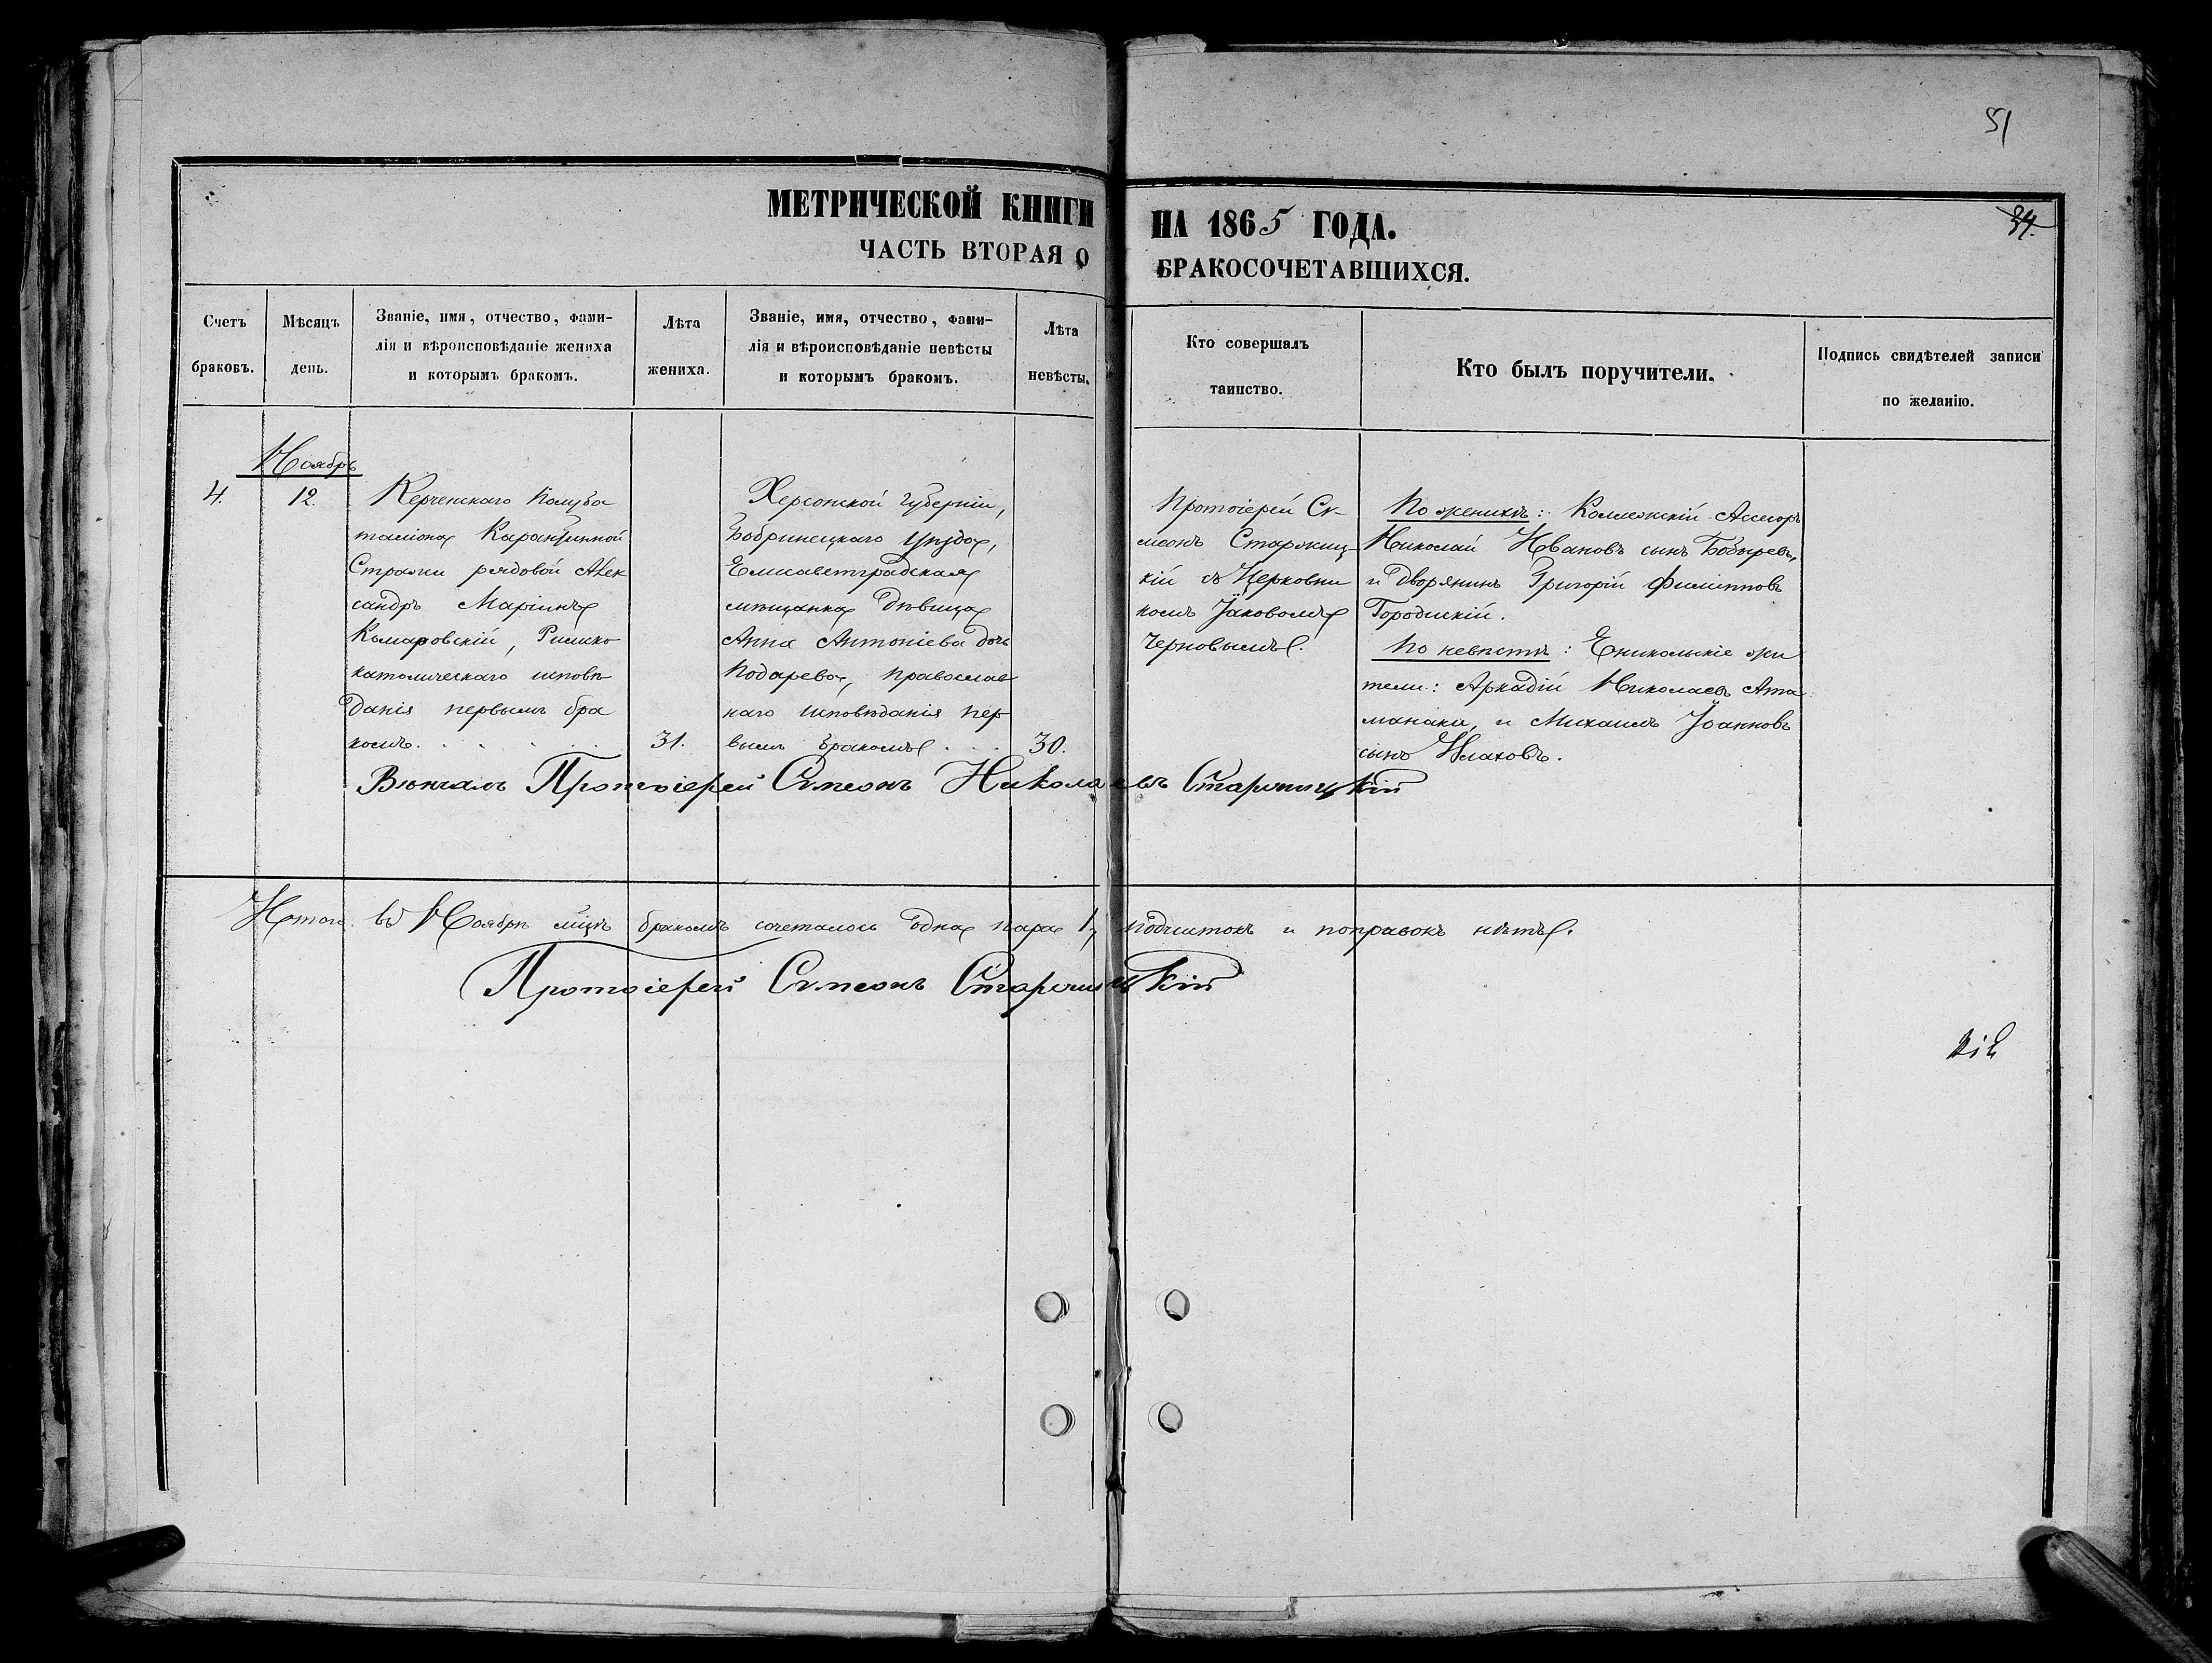 51
МЕТРИЧЕСКОЙ КНИГИ НА 1865 ГОДА.
34.
ЧАСТЬ ВТОРАЯ О БРАКОСОЧЕТАВШИХСЯ.
Счетъ браковъ.
Мѣсяцъ день.
Званіе, имя, отчество, фами-
лія и вѣроисповѣданіе жениха
и которымъ бракомъ.
Лѣта жениха.
Званіе, имя, отчество, фами-
лія и вѣроисповѣданіе невѣсты
и которымъ бракомъ.
Лѣта невѣсты.
Кто совершалъ
таинство.
Кто былъ поручители.
Подпись свидѣтелей записи
по желанію.
Ноябрь
4.
12.
Керченскаго Полуба
таліона Карантинной
Стражи рядовой Алек
сандръ Маріинъ
Комаровскій, Римско
католическаго исповѣ
данія первымъ бра
комъ.
31.
Херсонской губерніи,
Бобринецкаго уѣзда,
Елисаветградская
мѣщанка дѣвица
Анна Антоніева дочь
Подарева, православ
наго исповѣданія пер
вымъ бракомъ
30.
Протоіерей Сѵ-
меонъ Старжиц-
кій съ Церковни
комъ Іаковомъ
Черновымъ.
По женихѣ: Коллежскій Ассесоръ
Николай Ивановъ сынъ Бобыревъ,
и дворянинъ Григорій Филипповъ
Городискій.
По невѣстѣ: Еникольскіе жи
тели: Аркадій Николаевъ Ата
манаки, и Михаилъ Іоанновъ
сынъ Влаховъ.
Вѣнчалъ Протоіерей Сѵмеонъ Николаевъ Старжицкій
Итого въ Ноябрѣ мцѣ бракомъ сочеталось одна пара 1, подчистокъ и поправокъ нѣтъ.
Протоіерей Сѵмеонъ Старжицкій